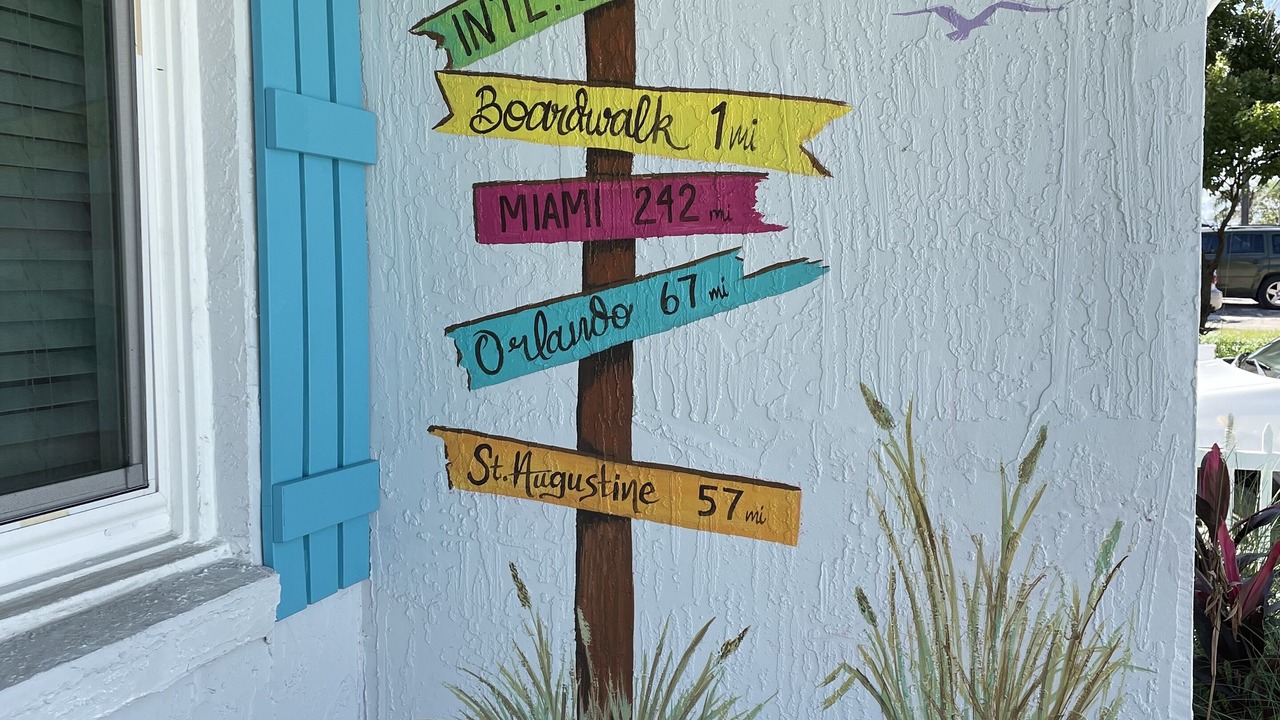 INTL.
Boardwalk 1 mi
MIAMI 242 mi
Orlando 67 mi
St. Augustine 57 mi